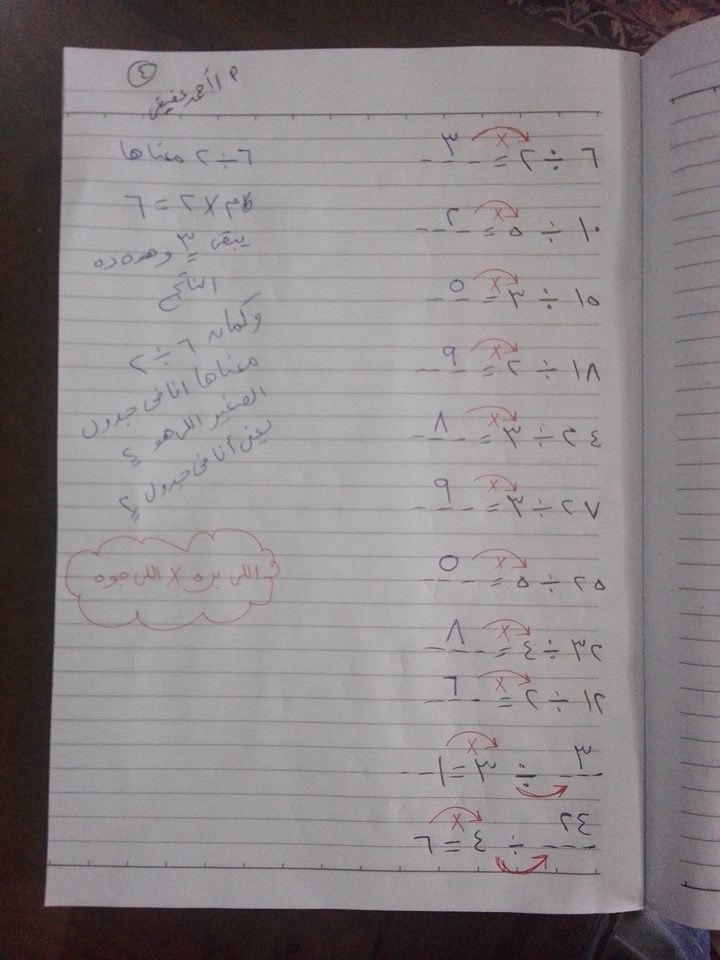 أ/أحمد عفيفي
٤
٦ ÷ ٢ = ٣
١٠ ÷ ٥ = ٢
١٥ ÷ ٣ = ٥
١٨ ÷ ٢ = ٩
٢٤ ÷ ٣ = ٨
٢٧ ÷ ٣ = ٩
٢٥ ÷ ٥ = ٥
٣٢ ÷ ٤ = ٨
١٢ ÷ ٢ = ٦
٣ ÷ ٣ = ١
٢٤ ÷ ٤ = ٦
٦ ÷ ٢ معناها
كام × ٢ = ٦
يبقى ٣ وهو ده
الناتج
وكمان ٦ ÷ ٢
معناها أنا فى جدول
الصغير اللى هو ٢
يعنى أنا فى جدول ٢
اللى بره × اللى جوه